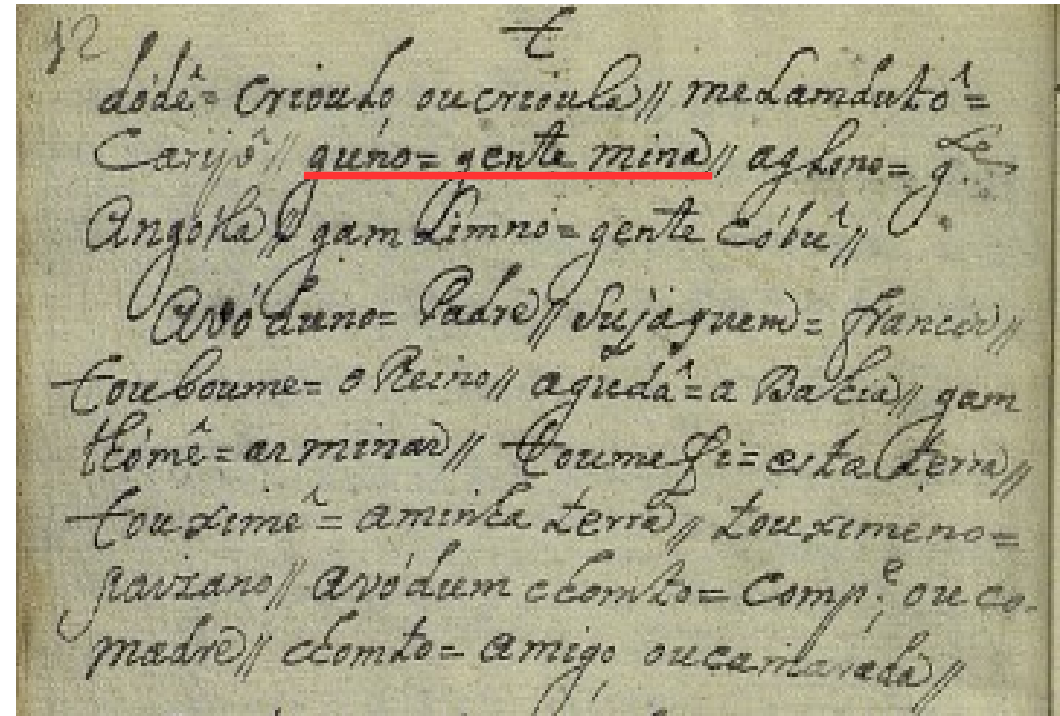 12
dódê = Crioulo ou crioula // medamdutô =
Carijô // guno = gente mina // aglono = g.te
Angola // gamlimno = gente cóbú //
Avóduno = Padre // Sujàquem = francez //
touboume = o Reino // agudâ = a Bahia // gam
thómê = as minas // toumefi = esta terra //
touximê = a minha terra // touximeno =
paizano // avódum chomto = Comp.e ou co-
madre // chomto = amigo ou camarada //